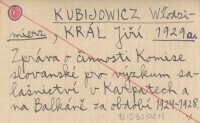 KUBIJOWICZ Włodzi-
mierz, KRÁL Jiří 1929a.
Zpráva o činnosti Komise
slovanské pro výzkum sa-
lašnictví v Karpatech a
na Balkáně za období 1924-1928.